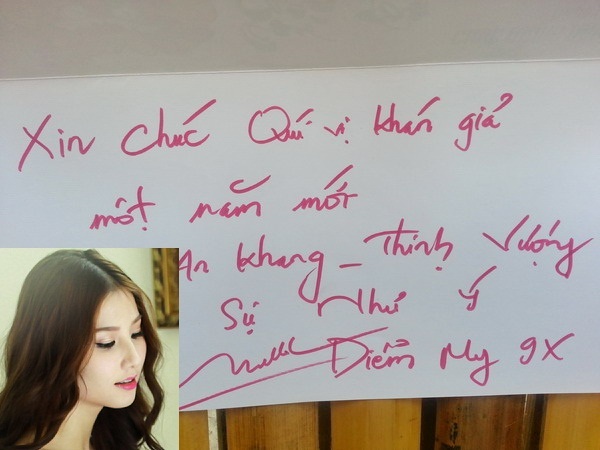 Xin chúc Quí vị khán giả
một năm mới
An khang _ Thịnh Vượng
Sự Như ý
Diễm My 9X